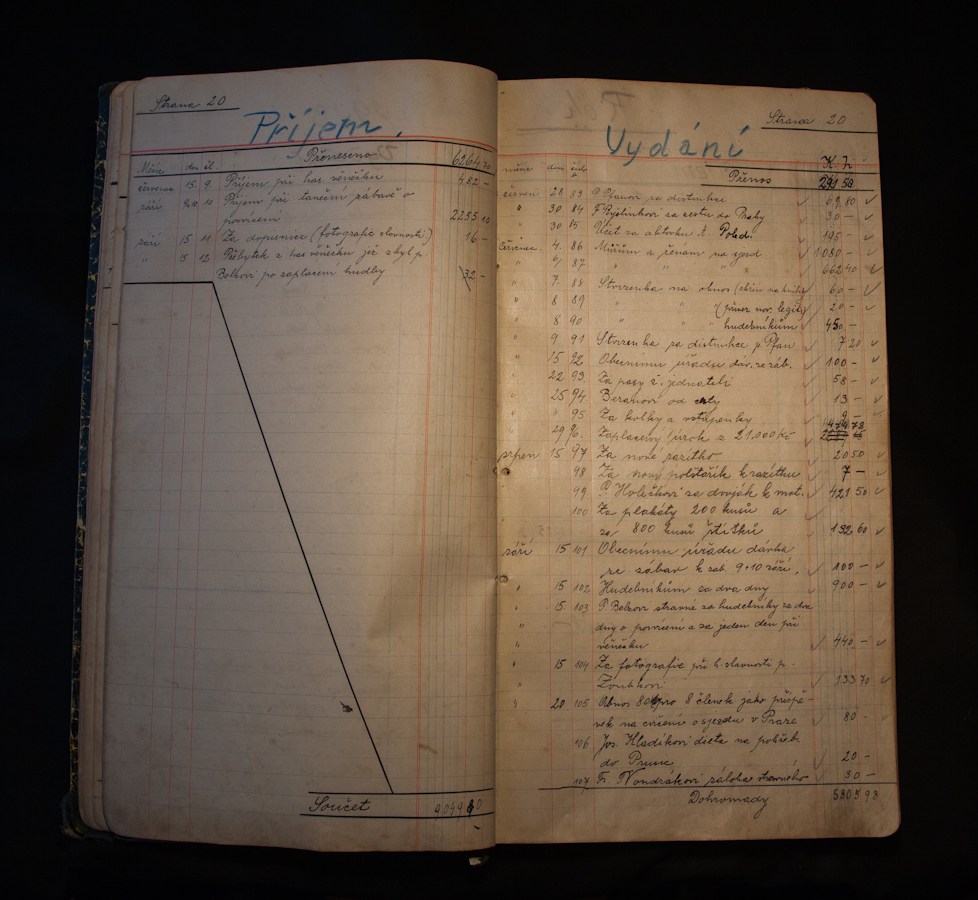 Strana 20
Příjem.
Přeneseno 6264.70
Měsíc dn čl.
července 15. 9. Příjem při has. věnečku 482 –
září 9/10. 10 Příjem při tanční zábavě o
posvícení 2255 10
září 15 11 Za dopisnice (fotografie slavnosti) 16 –
" 15 12 Přebytek z has. věnečku jež zbyl p.
Belkovi po zaplacení hudby 32 –
Součet
Strana 20
Vydání
K h
měsíc dny
Přenos 291 58
červen 28 83 P. Pfanovi za distinkce 69 80
" 30 84 za cestu do Prahy 30 –
" 30 85 Účet za 195 –
července 4. 86 1080 –
" 6. 87 " " " " 662 40
" 7. 88 Stvrzenka na obnos 60 –
" 8 89 " " 20 –
" 8 90 " " hudebníkům 450 –
" 9 91 Stvrzenka za distinkce p. Pfan 7 20
" 15 92 Obecnímu úřadu dáv. ze záb. 100 –
" 22 93 Za pasy č. jednateli 58 –
" 25 94 Beranovi od cesty 13 –
" " 95 Za kolky a vstupenky 9 –
" 29 96. Zaplacený úrok z 21.000 Kč 1474 78
srpen 15 97 Za nové razítko 20 50
98 Za nový polštářek k razítku 7 –
99 P. Holečkovi za dvoják k mot. 421 50
100 Za plakáty 200 kusů a
za 800 kusů štítků 132 60
září 15 101 Obecnímu úřadu dávka
ze zábav k zab. 9 + 10 září. 100 –
" 15 102 Hudebníkům za dva dny 900 –
" 15 103 P. Belkovi stravné za hudebníky za dva
" dny o posvícení a za jeden den při
" věnečku 440 –
" 15 104 Za fotografie při h. slavnosti p.
Zoubkovi 133 70
" 20 105 Obnos pro 8 členek jako příspě-
vek na cvičení o sjezdu v Praze 80 –
106 Jos. Hladíkovi dieta na pohřeb.
do 20 –
107 Fr. Vondrákovi záloha stravného 30 –
Dohromady 5805 98